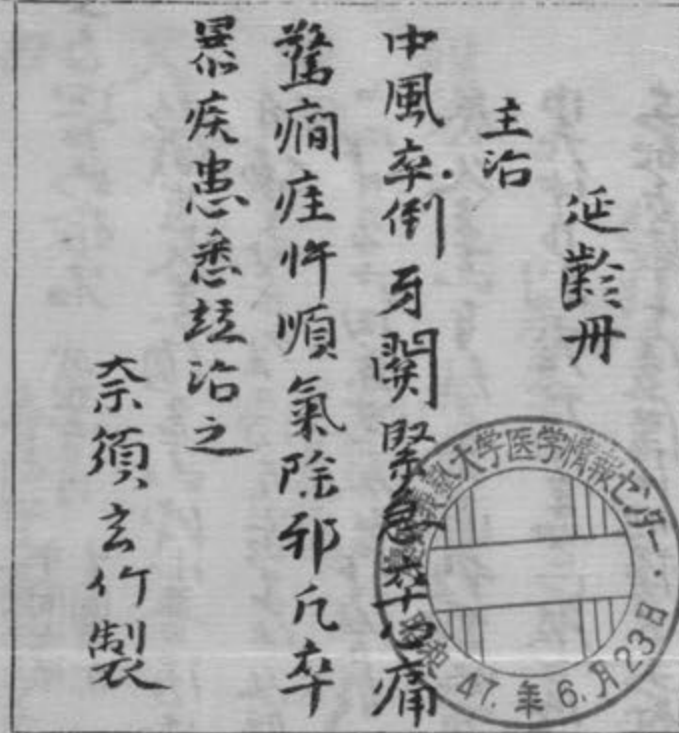 延齡丹
主治
中風卒倒牙關緊急卒心痛
驚癇疰忤順氣除邪凡卒
暴疾患悉治之
奈須玄竹製
大学医学情報センター・
昭和47.年6.月23日